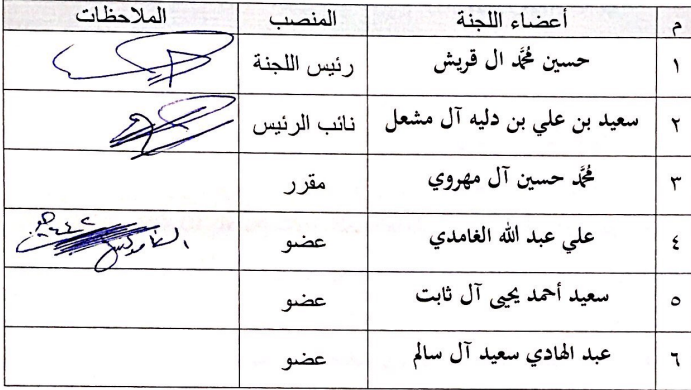 م أعضاء اللجنة المنصب الملاحظات
١ حسين محمد ال قريش رئيس اللجنة
٢ سعيد بن علي بن دليه آل مشعل نائب الرئيس
٣ محمد حسين آل مهروي مقرر
٤ علي عبد الله الغامدي عضو
٥ سعيد أحمد يحيى آل ثابت عضو
٦ عبد الهادي سعيد آل سالم عضو